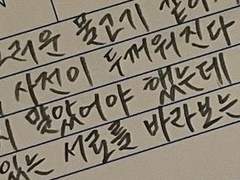 러운 물고기 같이
사전이 두꺼워진다
맞았어야 했는데
있는 서로를 바라보는